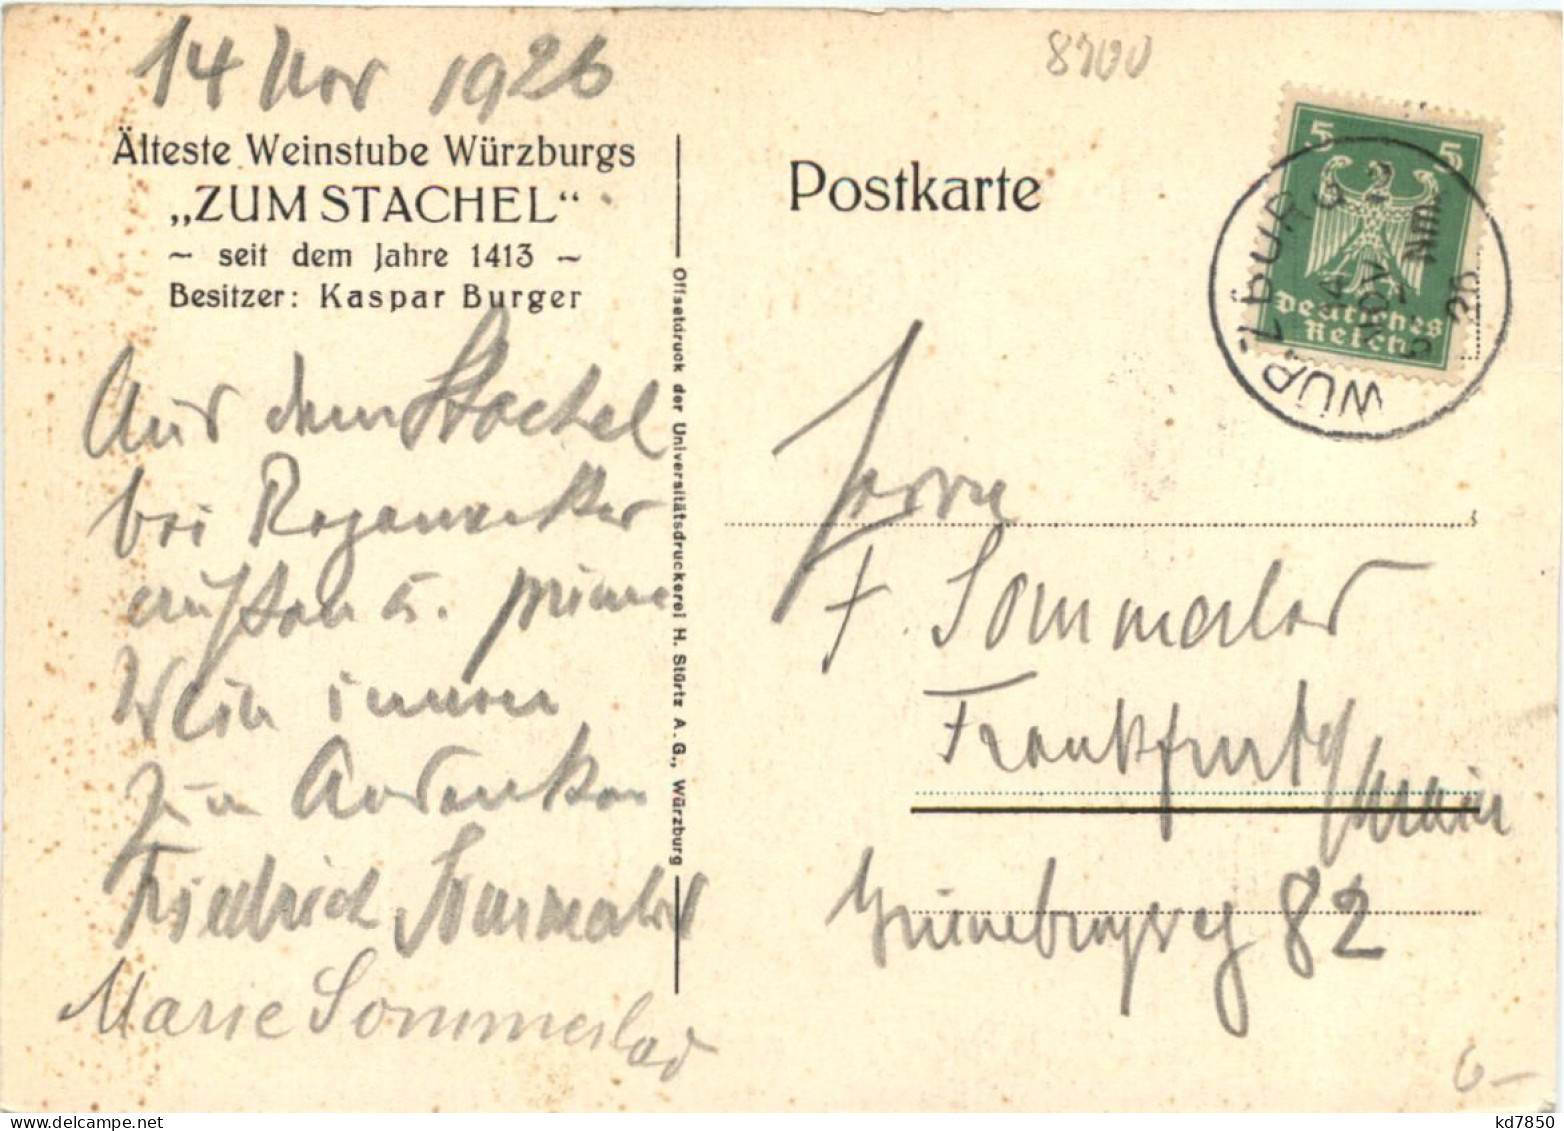 14 Nov 1926
Älteste Weinstube Würzburgs
„ZUM STACHEL“
~ seit dem Jahre 1413 ~
Besitzer: Kaspar Burger
Aus dem Stachel
bei Regenwetter
außen u. prima
Wein innen
zum Andenken
Friedrich Sommerlad
Marie Sommerlad
Offsetdruck der Universitätsdruckerei H. Stürtz A. G., Würzburg
8700
Postkarte
5 5
Deutsches
Reich
WÜRZBURG 2
14
NOV
5-6 Nm.
26
Herrn
F Sommerlad
Frankfurt/Main
Grüneburgweg 82
6-
kd7850